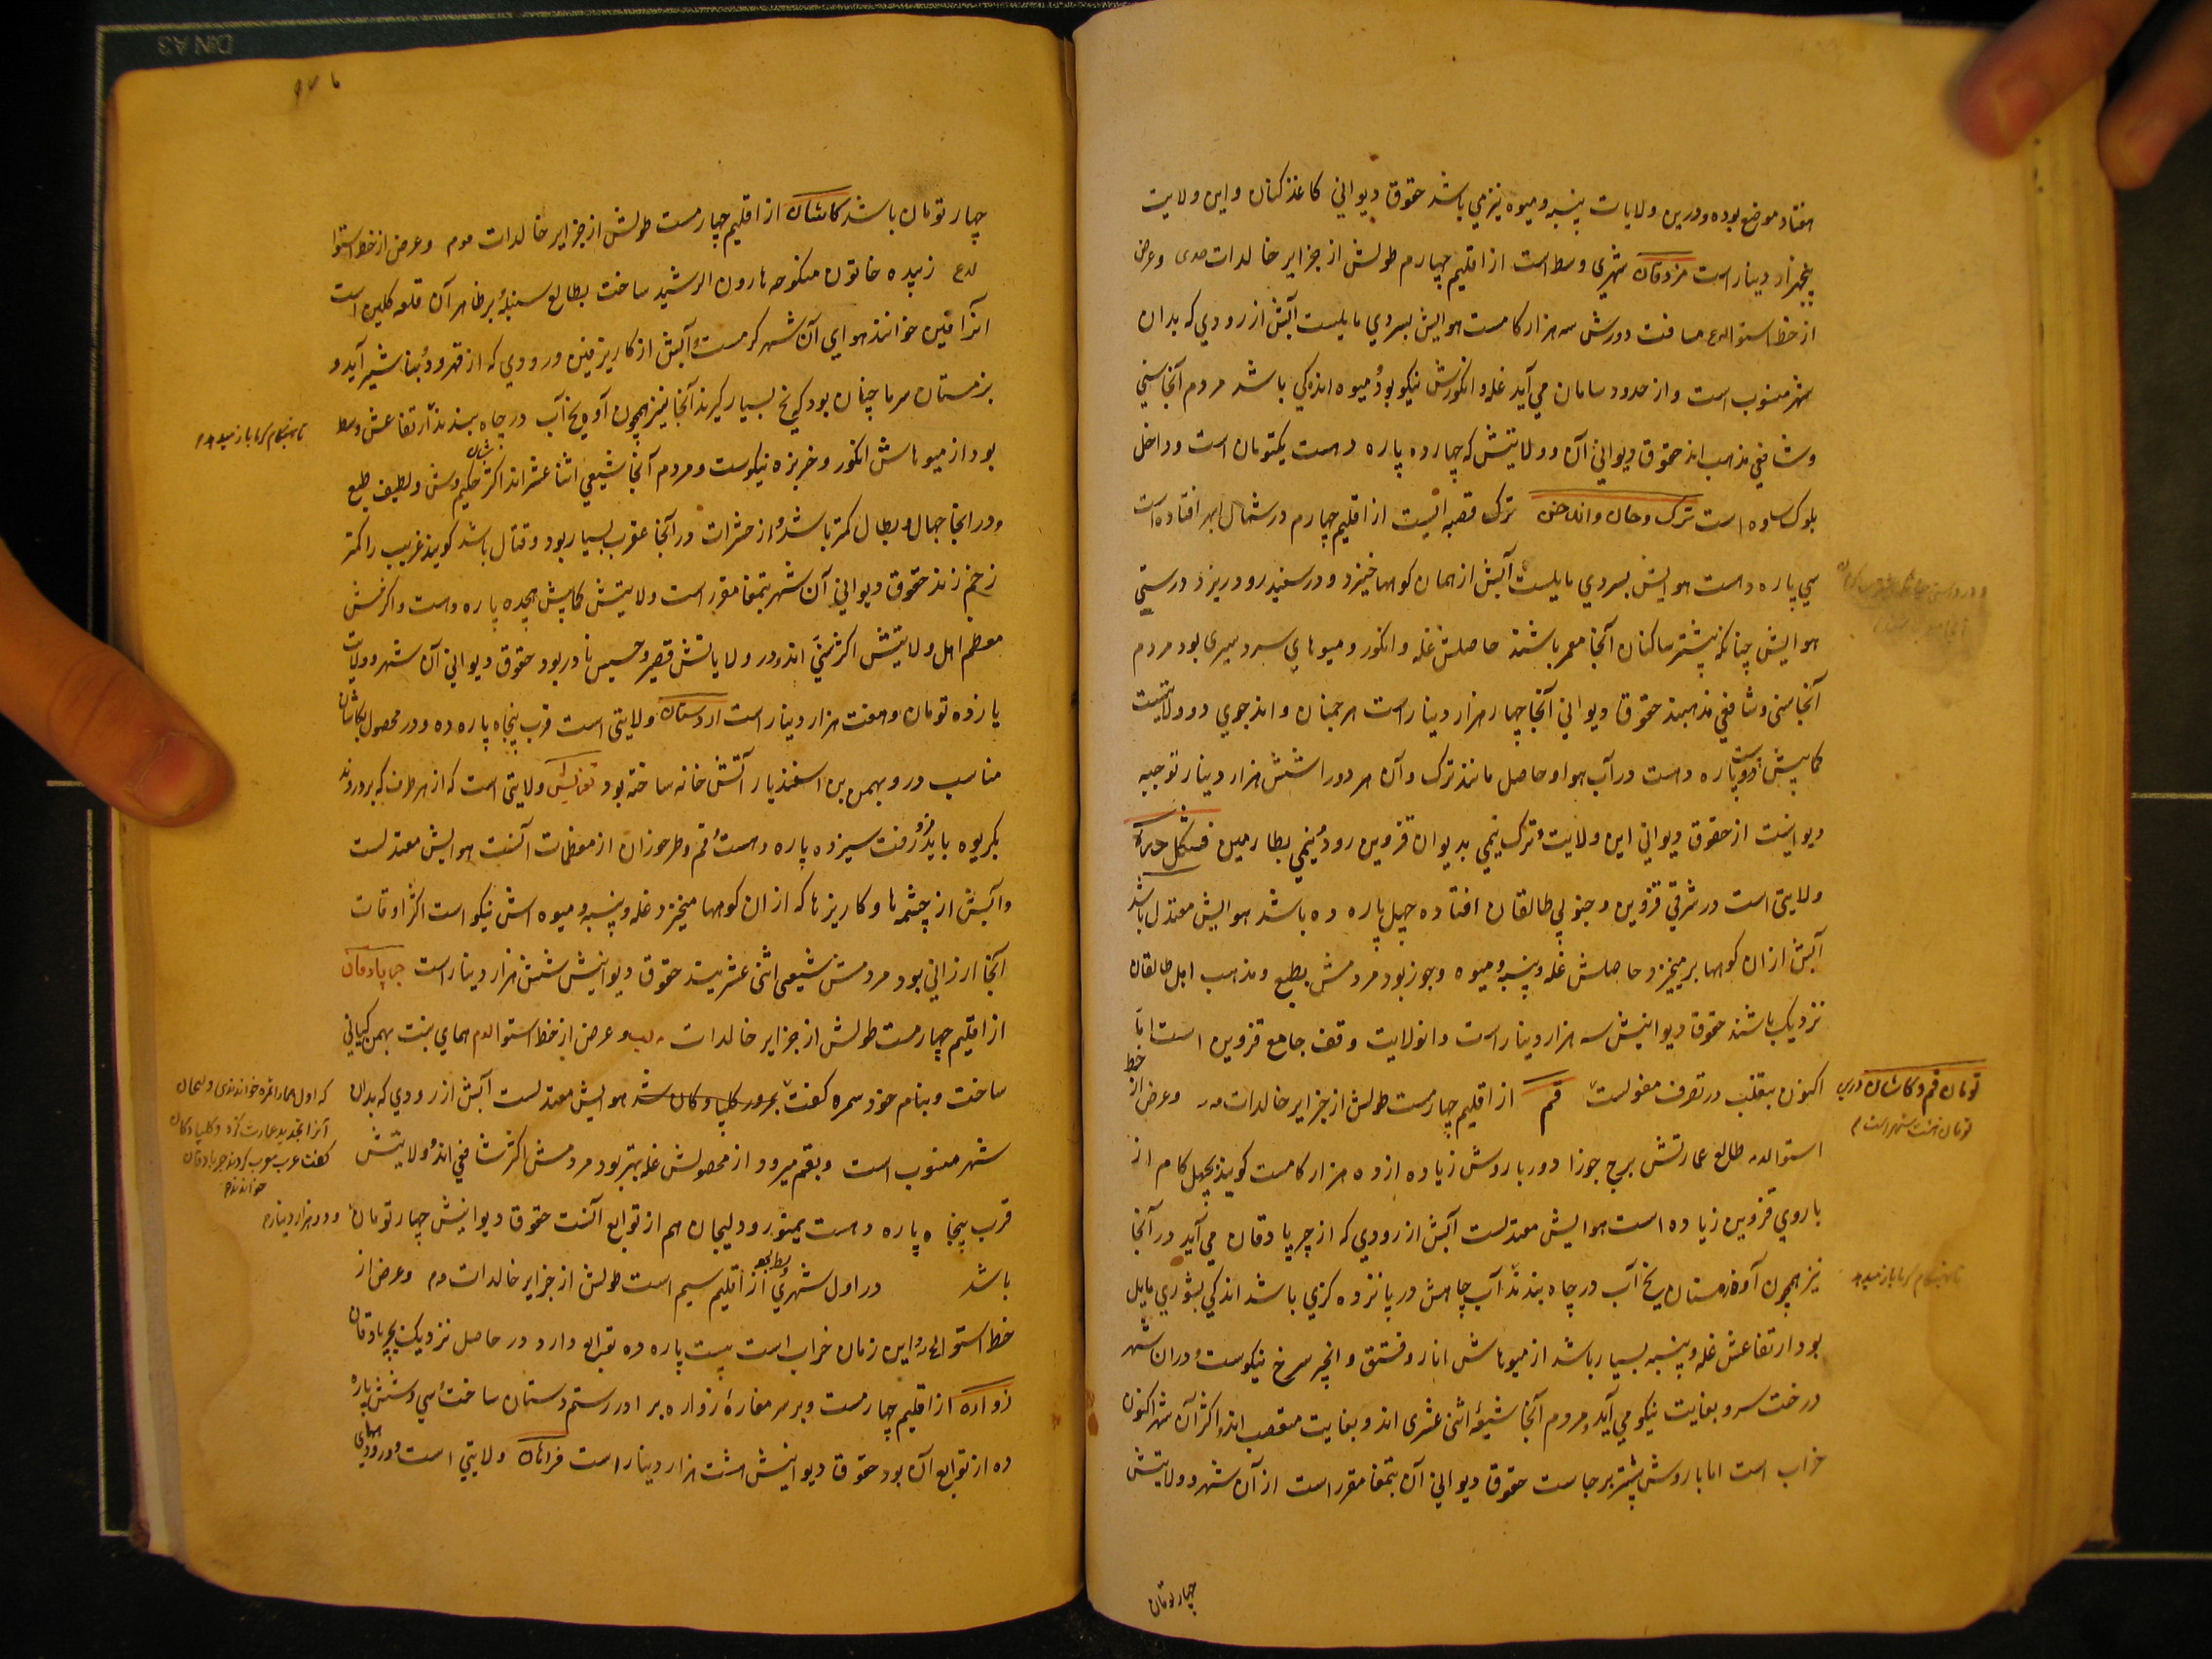 هفتاد موضع بوده و درین ولایات پنبه و میوه نیز می باشد حقوق دیوانی کاغذ کنان و این ولایت
پنجهزار دینار است مزدقان شهری وسط است از اقلیم چهارم طولش از جزایر خالدات صدی وعرض
از خط استوا لدع مسافت دورش سه هزار کامست هوایش بسردی مایلست آبش از رودی که بدان
شهر منسوب است و از حدود سامان می آید غله و انکورش نیکو بود و میوه اندکی باشد مردم آنجا سنی
وشافعی مذهب اند حقوق دیوانی آن و ولایتش که چهارده پاره دهست یکتومان است وداخل
بلوک ساوه است ترک وحان واندحن ترک قصبه ایست از اقلیم چهارم در شمال ابهر افتاده است
سی پاره دهست هوایش بسردی مایلست آبش از همان کوهها خیزد و در سفیدرود ریزد درستی
هوایش چنانکه پیشتر ساکنان آنجا معمر باشند حاصلش غله و انکور و میوهای سردسیری بود مردم
آنجا سنی و شافعی مذهبند حقوق دیوانی آنجا چهار هزار دینار است مرجمنان و اندجوی دو ولایتست
کمابیش بیست دو پاره دهست در آب هوا و حاصل مانند ترک و آن هر دو را شش هزار دینار توجیه
دیوانیست از حقوق دیوانی این ولایت و ترک نیمی بدیوان قزوین رود و نیمی بطارمین فشکل دره
ولایتی است در شرقی قزوین و جنوبی طالقان افتاده چهل پاره ده باشد هوایش معتدل باشد
آبش از ان کوهها بر میخیزد حاصلش غله و پنبه و میوه وجوز بود مردمش بطبع و مذهب اهل طالقان
نزدیک باشند حقوق دیوانیش سه هزار دینار است و انولایت وقف جامع قزوین است اما
اکنون بتغلب در تصرف مغولست قم از اقلیم چهارمست طولش از جزایر خالدات مه وعرض از خط
تومان قم و کاشان درین
تومان هشت شهر است م
استوا لده طالع عمارتش برج جوزا دور باروش زیاده از ده هزار کامست کویند بچهل کام از
باروی قزوین زیاده است هوایش معتدلست آبش از رودی که از جرپادقان می آید در آنجا
نیز همچون آوه زمستان یخ آب در چاه بندند آب چاهش در پانزده کزی باشد اندکی بشوری مایل
تا بهنکام کرما باز میدهد
بود ارتفاعش غله و پنبه بسیار باشد از میوهاش انار و فستق و انجیر سرخ نیکوست و دران شهر
درخت سرو بغایت نیکو می آید و مردم آنجا شیعه اثنی عشری اند و بغایت متعصب اند و اکثر آن شهر اکنون
خراب است اما باروش پیشتر برجاست حقوق دیوانی آن بتمغا مقرر است از آن شهر و ولایتش
چهار تومان
چهار تومان باشد کاشان از اقلیم چهارمست طولش از جزایر خالدات موم وعرض از خط استوا
لدع زبیده خاتون منکوحه هارون الرشید ساخت بطالع سنبله بر ظاهر آن قلعه کلین است
انرا فین خوانند هوای آن شهر کرمست و آبش از کاریز فین و رودی که از قهرود و بناشیر آید و
بزمستان سرما چنان بود که یخ بسیار کیرند آنجا نیز همچون آوه یخ آب در چاه بندند ارتفاعش وسط
تا بهنکام کرما باز میدهد
بود از میوهاش انکور و خربزه نیکوست و مردم آنجا شیعی اثنا عشر اند اکثر شان حکیم وش و لطیف طبع
ودر انجا جهال و بطال کمتر باشد و از حشرات در آنجا عقرب بسیار بود و قتال باشد کویند غریب را کمتر
زخم زند حقوق دیوانی آن شهر بتمغا مقرر است ولایتش کمابیش هجده پاره دهست و اکثرش
معظم اهل ولایتش اکثر سنی اند و در ولایاتش قصیر و خسیس نادر بود حقوق دیوانی آن شهر و ولایت
یازده تومان و هفت هزار دینار است اردستان ولایتی است قرب پنجاه پاره ده و در محصول بکاشان
مناسب درو بهمن بن اسفندیار آتش خانه ساخته بود تفرش ولایتی است که از هر طرف که برو روند
بکریوه باید فرو رفت سیزده پاره دهست و قم وطرخوزان از معظمات آنست هوایش معتدلست
وآبش از چشمها و کاریزها که از ان کوهها میخیزد و غله و پنبه و میوه اش نیکو است اکثر اوقات
آنجا ارزانی بود مردمش شیعی اثنی عشریند حقوق دیوانیش شش هزار دینار است جرپادقان
از اقلیم چهارمست طولش از جزایر خالدات لب وعرض از خط استوا لدم همای بنت بهمن کیانی
ساخت و بنام خود سمره کفت بمرور کلپادکان شد هوایش معتدلست آبش از رودی که بدان
که اول همارا ثمره خواندندی ولجان
آنرا تجدید عمارت کرد و کلپادکان
کفت عرب معرب کردند جربادقان
خواندند م
شهر منسوب است و بقم میرود از محصولش غله بهتر بود مردمش اکثر شافعی اند و ولایتش
قرب پنجاه پاره دهست نیمور و دلیجان هم از توابع آنست حقوق دیوانیش چهار تومان و دو هزار دینار م
باشد در اول شهری وسط بوده از اقلیم سیم است طولش از جزایر خالدات وم وعرض از
خط استوا لحه و این زمان خراب است بیست پاره ده توابع دارد در حاصل نزدیک بجرپادقان
زواره از اقلیم چهارمست و بر سر مغازه زواره برادر رستم دستان ساخت و سی و شش پاره
ده از توابع آن بود حقوق دیوانیش هشت هزار دینار است فراهان ولایتی است و در و دیهای